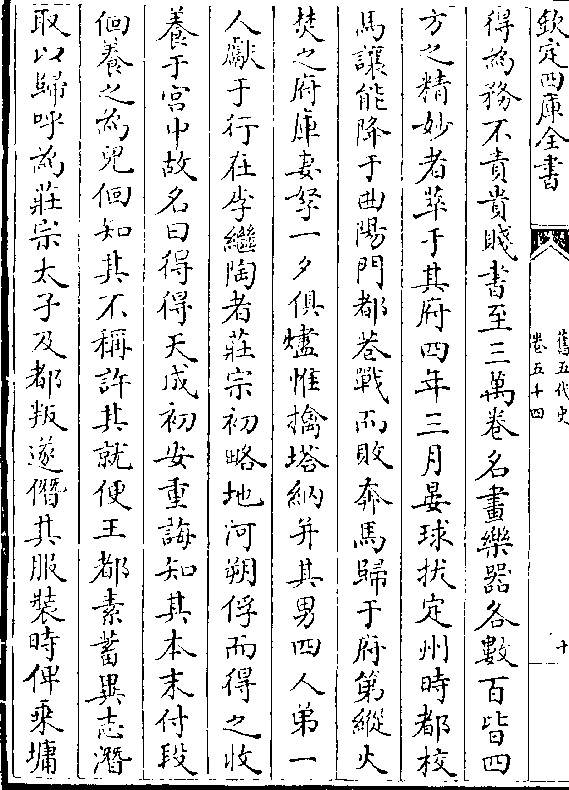 欽定四庫全書
舊五代史
卷五十四
十
得為務不責貴賤書至三萬卷名畫樂器各數百皆四
方之精妙者萃于其府四年三月晏球拔定州時都校
馬讓能降于曲陽門都巷戰而敗奔馬歸于府第縱火
焚之府庫妻孥一夕俱燼惟擒塔納并其男四人弟一
人獻于行在李繼陶者莊宗初略地河朔俘而得之收
養于宮中故名曰得得天成初安重誨知其本末付段
佪養之為兒佪知其不稱許其就便王都素蓄異志潛
取以歸呼為莊宗太子及都叛遂僭其服裝時俾乘墉